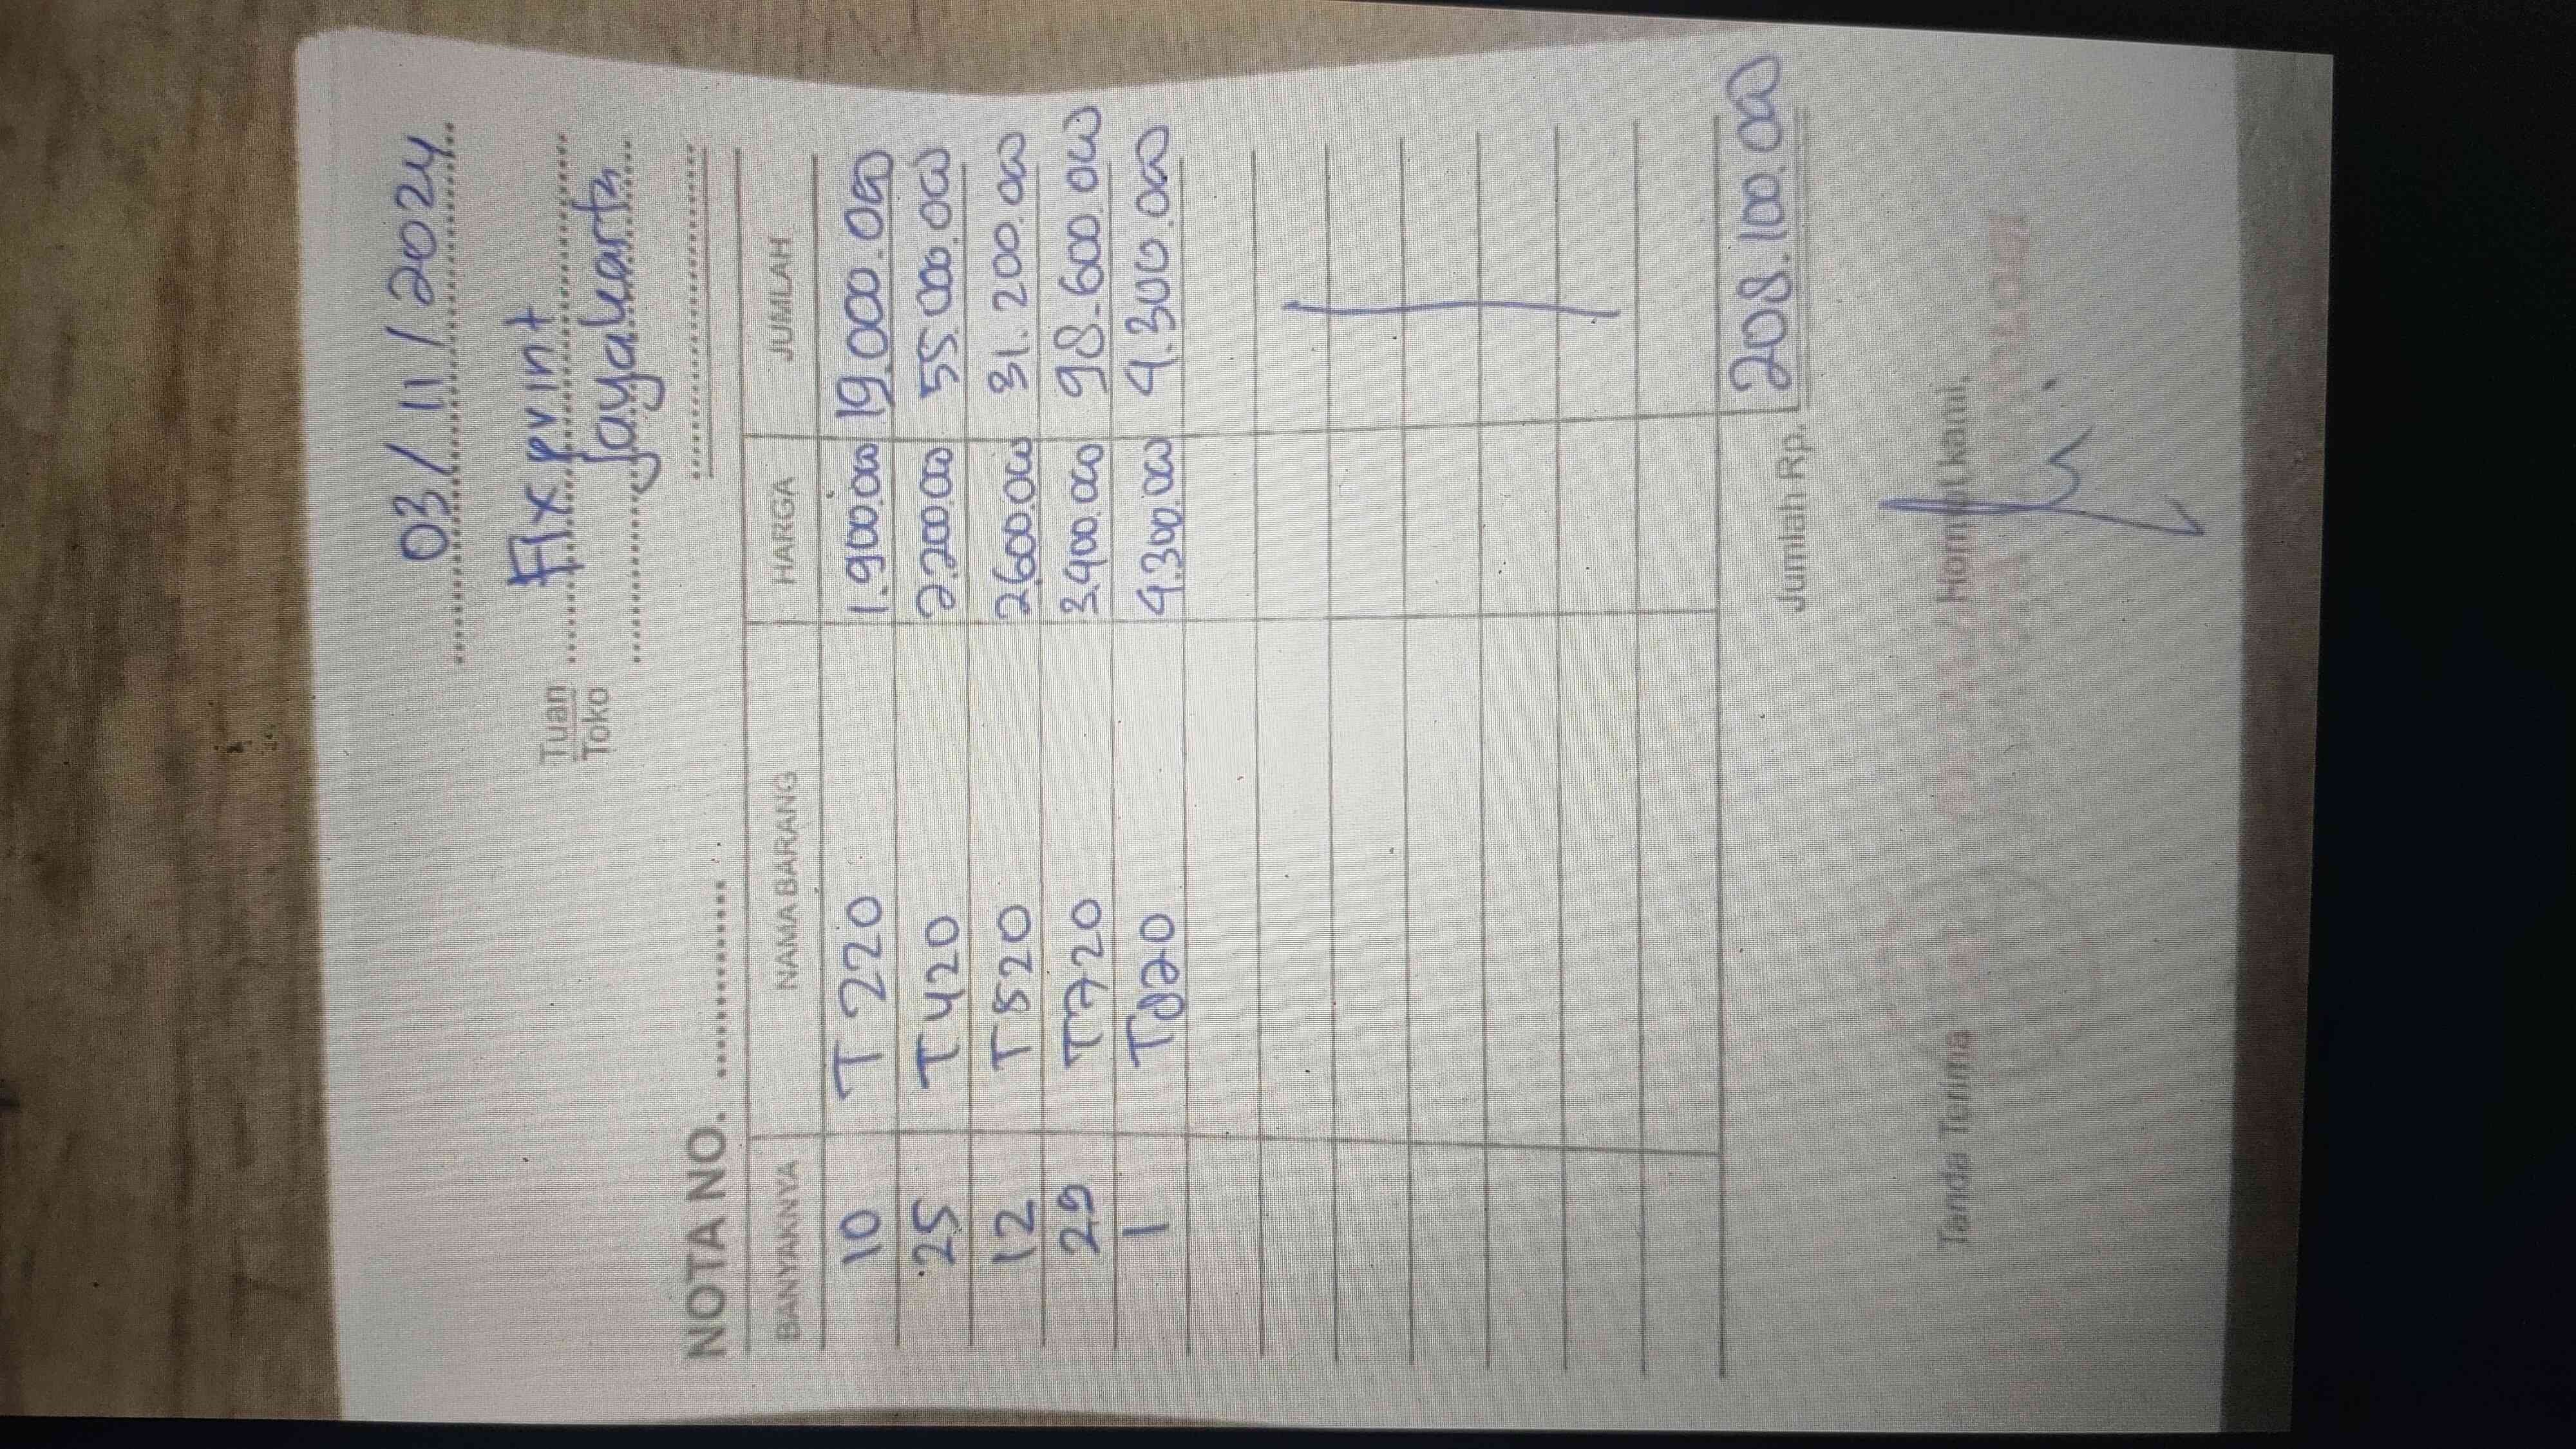 03/11/2024
Tuan Fix print
Toko Jayakarta
NOTA NO. ................
BANYAKNYA NAMA BARANG HARGA JUMLAH
10 T 220 1.900.000 19.000.000
25 T 420 2.200.000 55.000.000
12 T 520 2.600.000 31.200.000
29 T720 3.400.000 98.600.000
1 T020 4.300.000 4.300.000
Jumlah Rp. 208.100.000
Tanda Terima Hormat kami,